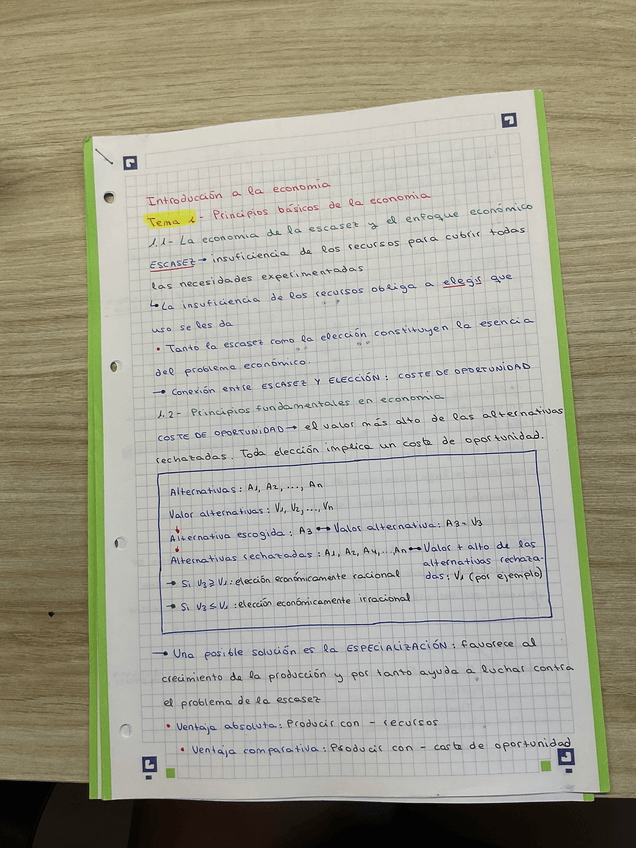 Introducción a la economía
Tema 1 - Principios básicos de la economía
1.1- La economía de la escasez y el enfoque económico
ESCASEZ → insuficiencia de los recursos para cubrir todas
las necesidades experimentadas
↳ La insuficiencia de los recursos obliga a elegir que
uso se les da
• Tanto la escasez como la elección constituyen la esencia
del problema económico.
→ Conexión entre ESCASEZ Y ELECCIÓN: COSTE DE OPORTUNIDAD
1.2- Principios fundamentales en economía
COSTE DE OPORTUNIDAD → el valor más alto de las alternativas
rechazadas. Toda elección implica un coste de oportunidad.
Alternativas: A1, A2, ..., An
Valor alternativas: V1, V2, ..., Vn
↓
Alternativa escogida: A3 ↔ Valor alternativa: A3 = V3
↓
Alternativas rechazadas: A1, A2, A4, ... An ↔ Valor + alto de las
alternativas rechaza-
das: V1 (por ejemplo)
→ Si V3 ≥ V1: elección económicamente racional
→ Si V3 ≤ V1: elección económicamente irracional
→ Una posible solución es la ESPECIALIZACIÓN: favorece al
crecimiento de la producción y por tanto ayuda a luchar contra
el problema de la escasez
• Ventaja absoluta: Producir con - recursos
• Ventaja comparativa: Producir con - coste de oportunidad